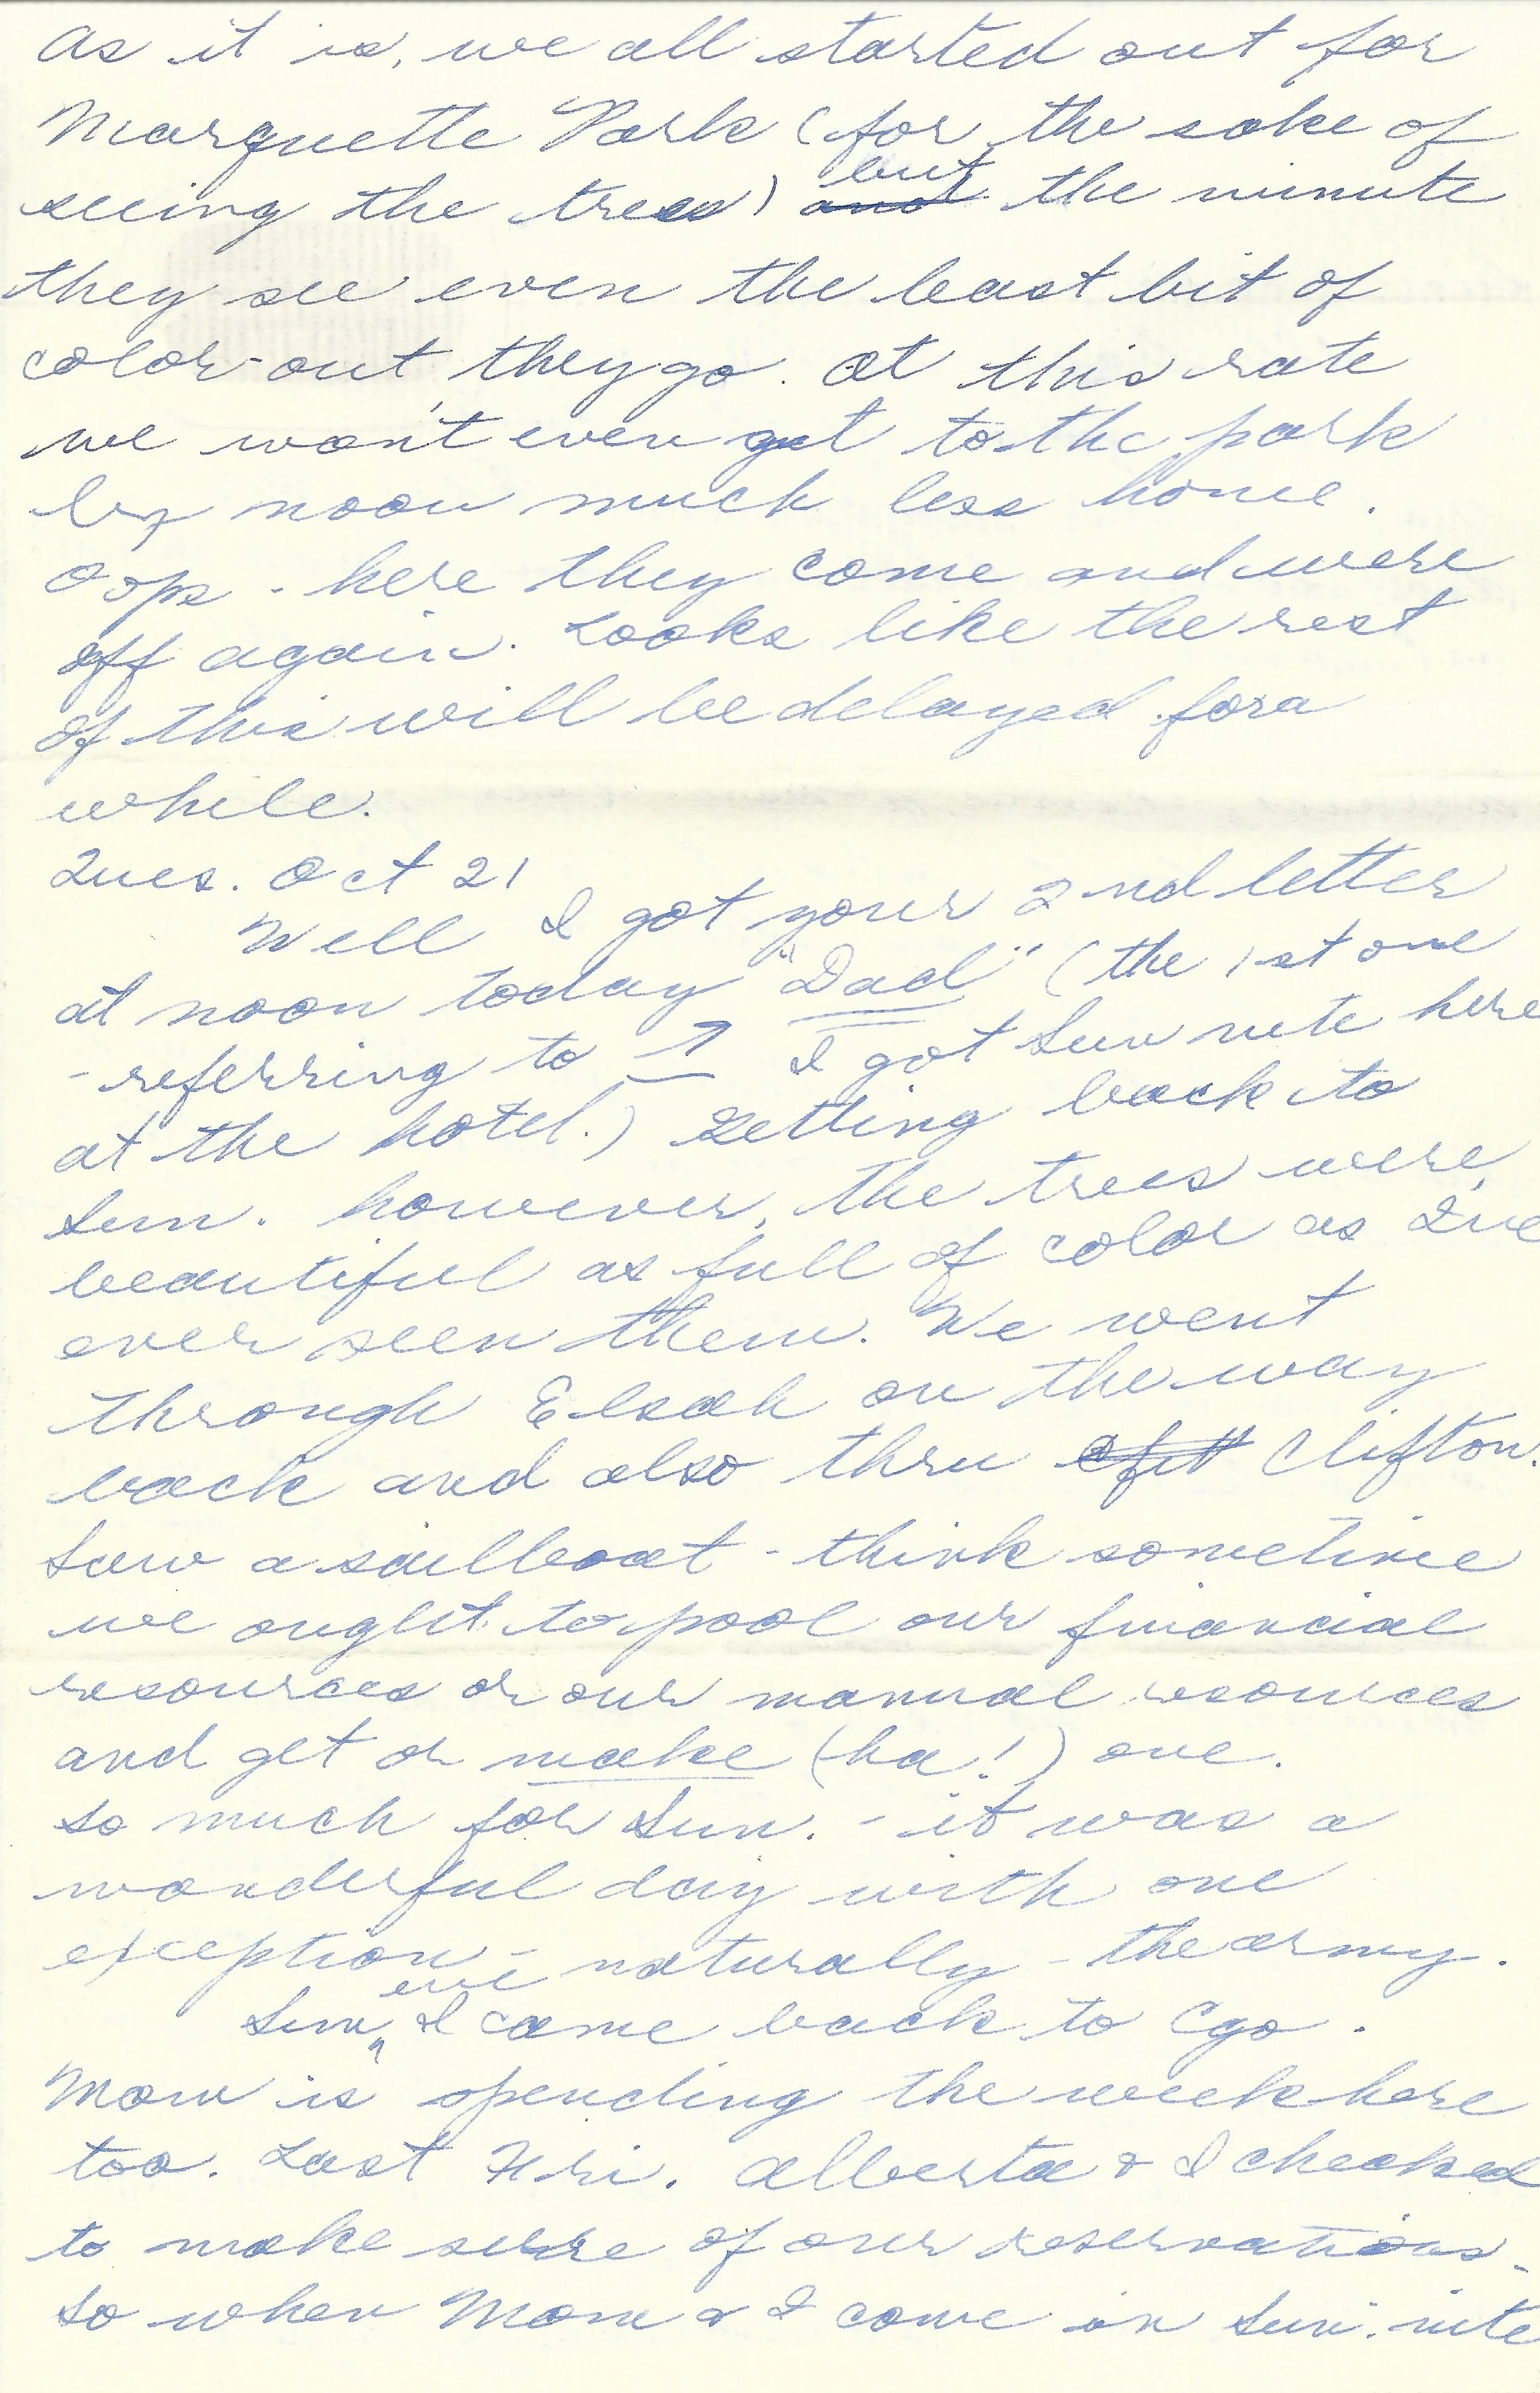 As it is, we all started out for
Marquette Park (for the sake of
seeing the trees) and but the minute
they see even the least bit of
color-out they go. At this rate
we won't even get to the park
by noon much less home.
Oops - here they come and were
off again. Looks like the rest
of this will be delayed for a
while.
Tues. Oct 21
Well I got your 2nd letter
at noon today "Dad" (the 1st one
- referring to ↗ I got Sun nite here
at the hotel.) Getting back to
Sun. however, the trees were
beautiful as full of color as I've
ever seen them. We went
through Elsah on the way
back and also thru Clifton.
Saw a sailboat - think sometime
we ought to pool our financial
resources or our manual resources
and get or make (ha!) one.
So much for Sun. - it was a
wonderful day with one
exception - naturally - the army.
Sun eve I came back to Cgo.
Mom is spending the week here
too. Last Fri. Alberta & I checked
to make sure of our reservations -
so when Mom & I come in Sun. nite